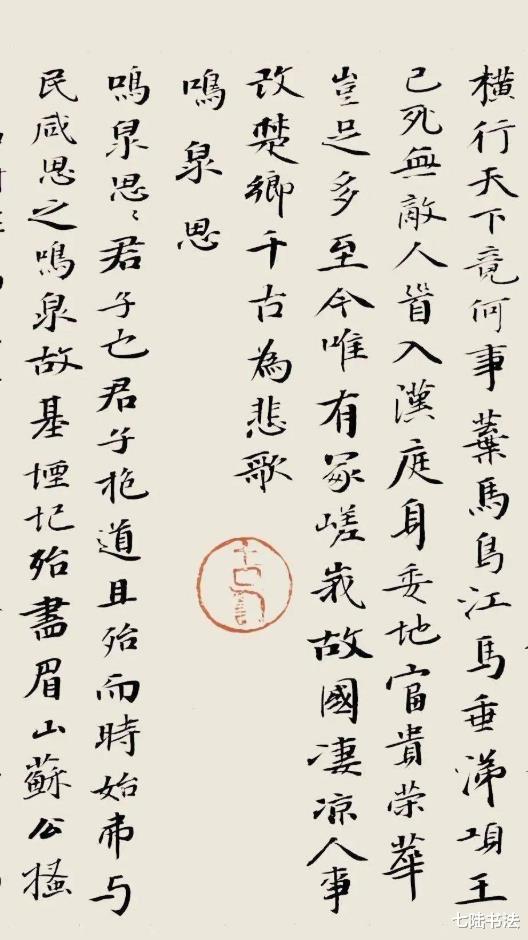 横行天下竟何事棄馬烏江馬垂涕項王
已死無敵人首入漢庭身委地富貴榮華
豈足多至今唯有冢嵯峨故國凄凉人事
改楚鄉千古為悲歌
鳴泉思
鳴泉思〻君子也君子抱道且殆而時始弗与
民咸思之鳴泉故基堙圮殆盡眉山蘇公搔
七陆书法